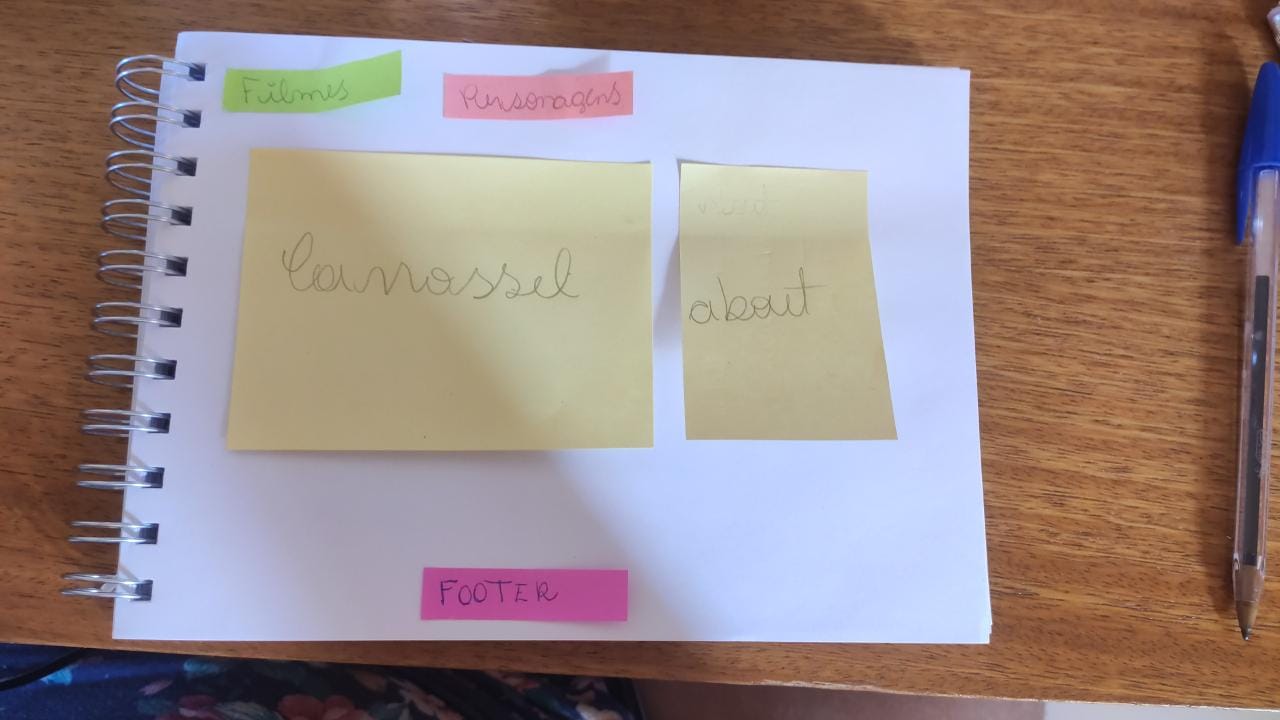 Filmes
Personagens
Carrossel
about
FOOTER